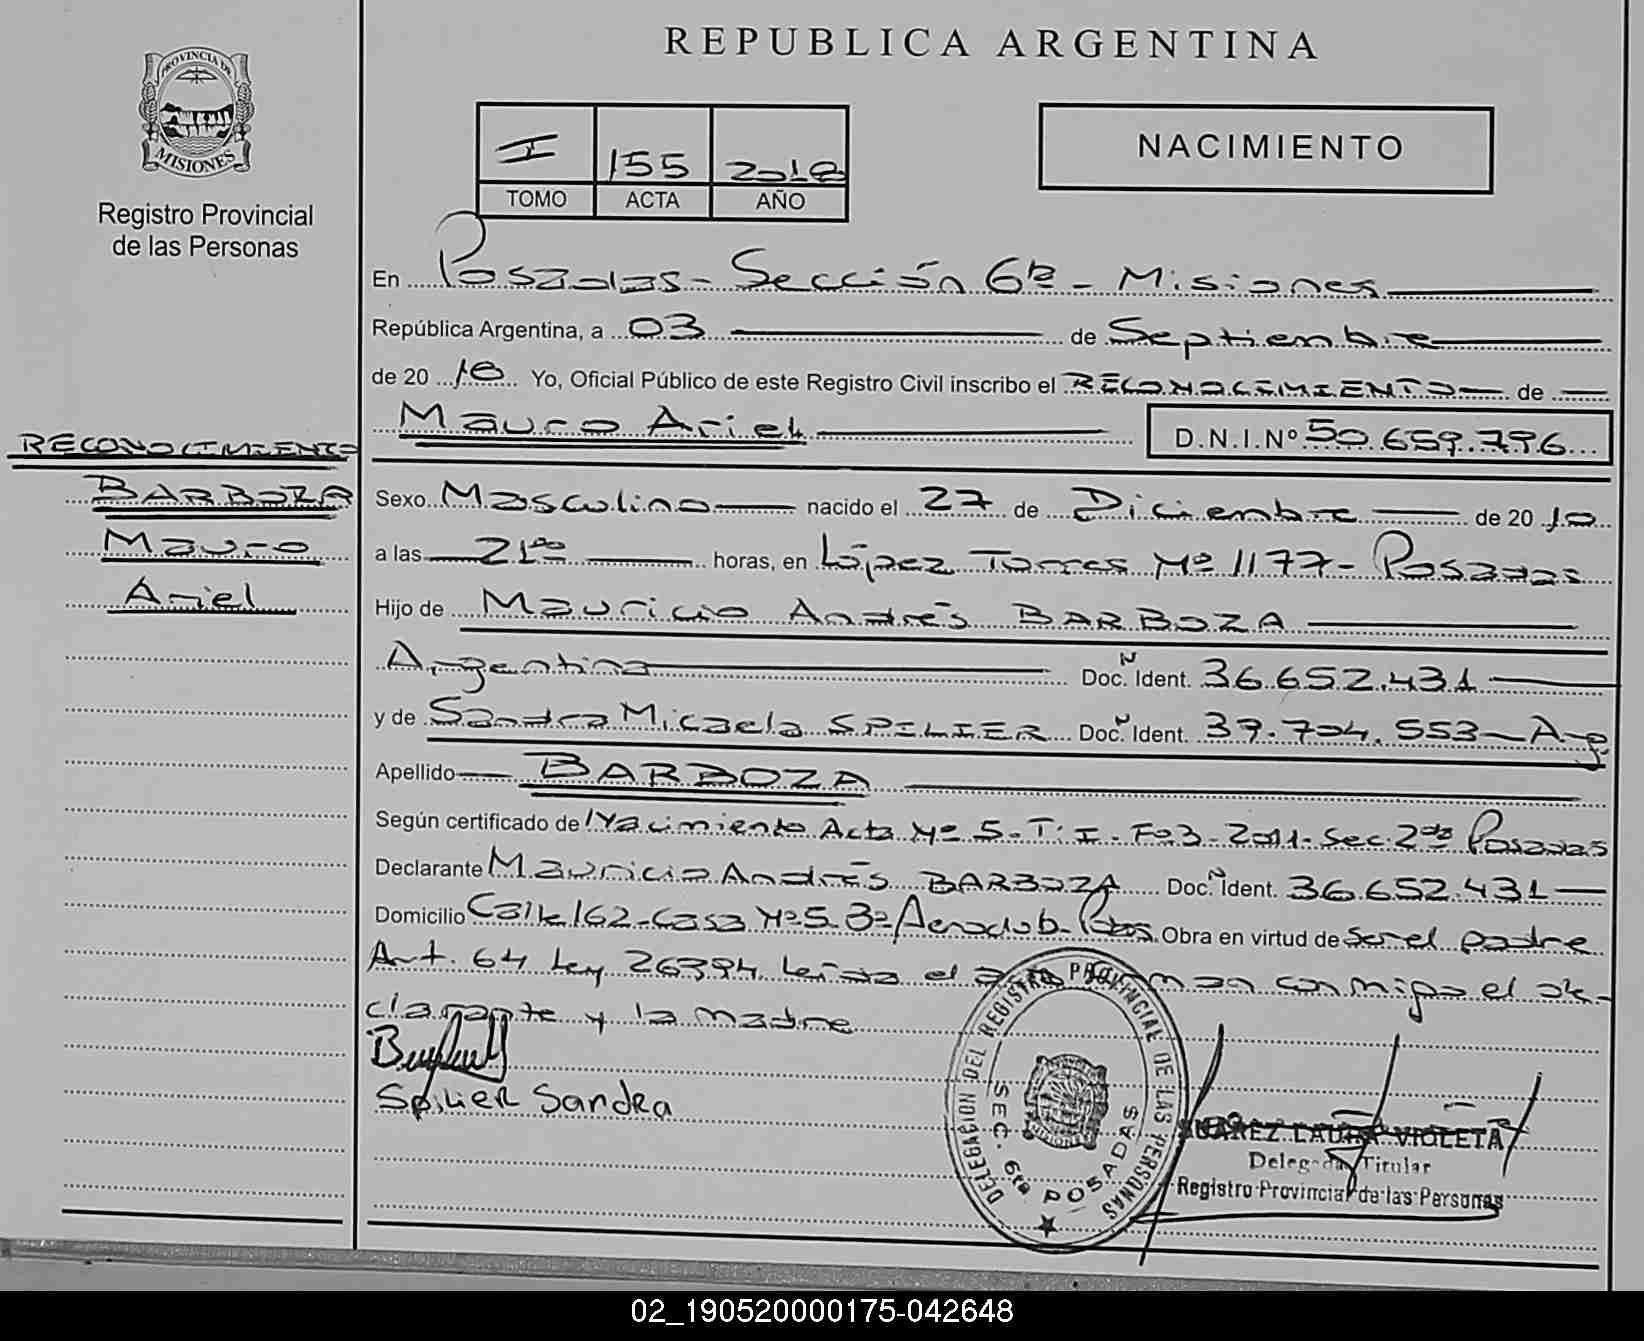 REPUBLICA ARGENTINA
PROVINCIA DE
MISIONES
Registro Provincial
de las Personas
I 155 2018
TOMO ACTA AÑO
NACIMIENTO
En Posadas - Sección 6ta - Misiones
República Argentina, a 03 de Septiembre
de 20 18 Yo, Oficial Público de este Registro Civil inscribo el RECONOCIMIENTO de
Mauro Ariel D.N.I.Nº 50.659.796
RECONOCIMIENTO
BARBOZA
Mauro
Ariel
Sexo Masculino nacido el 27 de Diciembre de 20 10
a las 21 00 horas, en López Torres Nº 1177 - Posadas
Hijo de Mauricio Andrés BARBOZA
Argentina Doc. N Ident. 36.652.431
y de Sandra Micaela SPILIER Doc. N Ident. 39.704.553 - Arg
Apellido BARBOZA
Según certificado de Nacimiento Acta Nº 5 - T: I - Fº 3 - 2011 - Sec. 2da Posadas
Declarante Mauricio Andrés BARBOZA Doc. N Ident. 36.652.431
Domicilio Calle 162 - Casa Nº 5 Bº Aeroclub - Pdas. Obra en virtud de ser el padre
Art. 64 Ley 26994. Leída el acta firman conmigo el de-
clarante y la madre
Spilier Sandra
DELEGACION DEL REGISTRO PROVINCIAL DE LAS PERSONAS
SEC. 6ta POSADAS
SUAREZ LAURA VIOLETA
Delegada Titular
Registro Provincial de las Personas
02_190520000175-042648